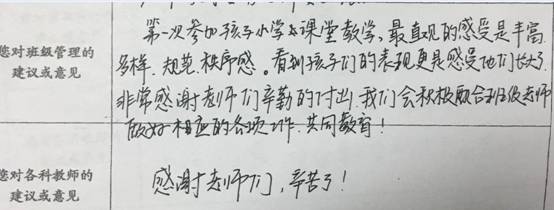 您对班级管理的
建议或意见
第一次参加孩子小学的课堂教学,最直观的感受是丰富
多样、规范、秩序感。看到孩子们的表现更是感受他们长大了
非常感谢老师们辛勤的付出,我们会积极配合班级老师
做好相应的各项工作,共同教育!
您对各科教师的
建议或意见
感谢老师们,辛苦了!